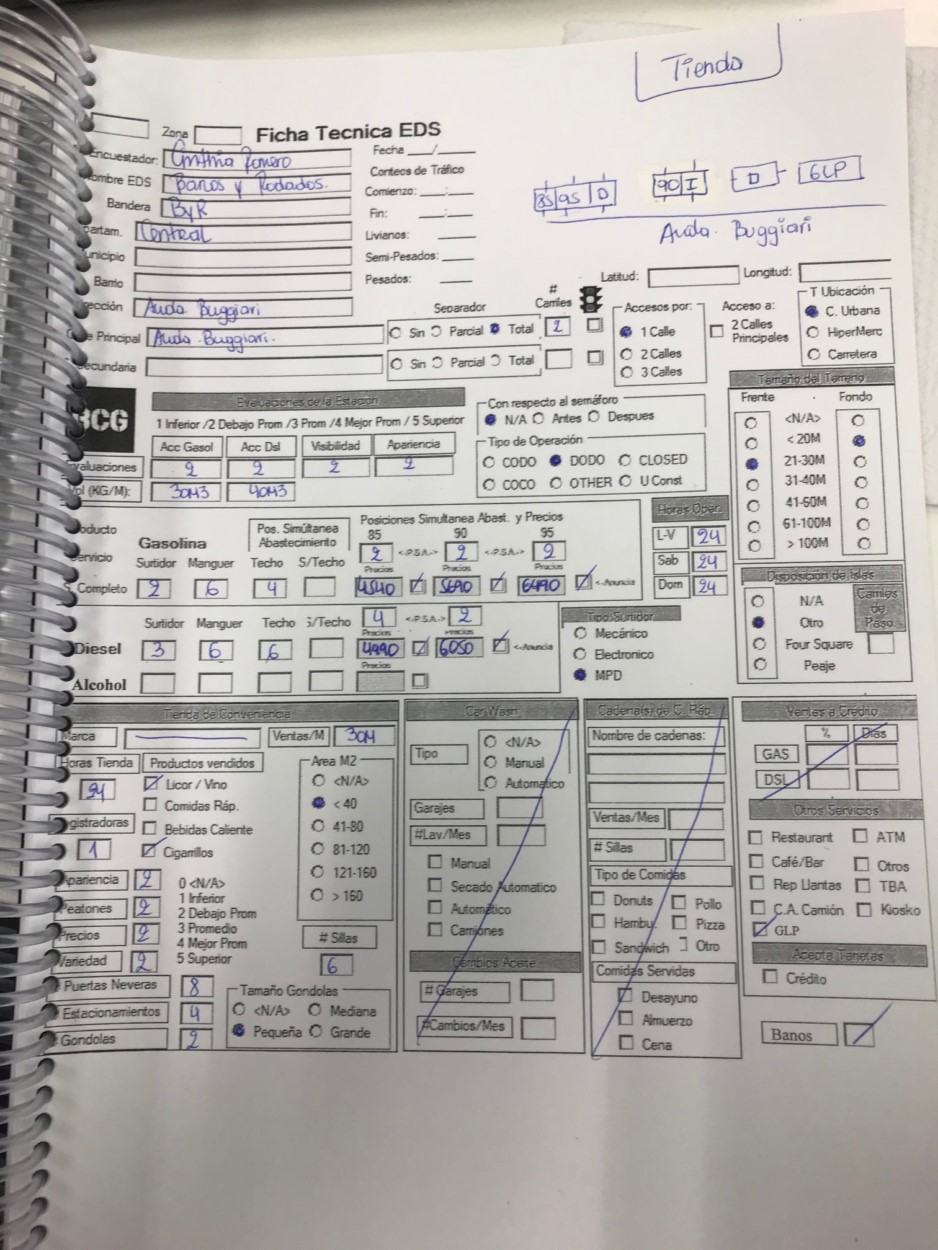 Tienda
Zona
Ficha Tecnica EDS
Encuestador: Cinthia Romero
Fecha ___/___
ombre EDS Banos y Rodados.
Conteos de Tráfico
Bandera ByR
Comienzo: __:__
partam. Central
Fin: __:__
unicipio
Livianos: ____
Barrio
Semi-Pesados: ____
Pesados: ____
85 95 D 90 I D GLP
Avda. Buggiari
Latitud: Longitud:
ección Avda Buggiari
Separador # Carriles
e Principal Avda. Buggiari.
Sin Parcial Total 2
ecundaria
Sin Parcial Total
Accesos por:
1 Calle
2 Calles
3 Calles
Acceso a:
2 Calles
Principales
T Ubicación
C. Urbana
HiperMerc
Carretera
BCG
Evaluaciones de la Estacion
1 Inferior /2 Debajo Prom /3 Prom /4 Mejor Prom / 5 Superior
Acc Gasol Acc Dsl Visibilidad Apariencia
valuaciones 2 2 2 2
ol (KG/M): 30M3 40M3
Con respecto al semáforo
N/A Antes Despues
Tipo de Operación
CODO DODO CLOSED
COCO OTHER U Const
Tamaño del Terreno
Frente Fondo
<N/A>
< 20M
21-30M
31-40M
41-60M
61-100M
> 100M
oducto
Servicio
Gasolina
Pos. Simúltanea
Abastecimiento
Posiciones Simultanea Abast. y Precios
85 90 95
2 <-P.S.A.-> 2 <-P.S.A.-> 2
Surtidor Manguer Techo S/Techo
Precios Precios Precios
Completo 2 6 4 4540 5690 6490 <-Anuncia
Horas Oper.
L-V 24
Sab 24
Dom 24
Surtidor Manguer Techo S/Techo 4 <-P.S.A.-> 2
Precios Precios
Diesel 3 6 6 4990 6050 <-Anuncia
Precios
Alcohol
Tipo Surtidor
Mecánico
Electronico
MPD
Disposición de Islas
N/A
Otro
Four Square
Peaje
Carriles
de
Paso
Tienda de Conveniencia
Marca Ventas/M 30M
Horas Tienda Productos vendidos
24
Licor / Vino
Comidas Ráp.
gistradoras
Bebidas Caliente
1
Cigarrillos
Area M2
<N/A>
< 40
41-80
81-120
121-160
> 160
Apariencia 2
Peatones 2
Precios 2
Variedad 2
0 <N/A>
1 Inferior
2 Debajo Prom
3 Promedio
4 Mejor Prom
5 Superior
# Sillas
6
# Puertas Neveras 8
Estacionamientos 4
Gondolas 2
Tamaño Gondolas
<N/A> Mediana
Pequeña Grande
Car Wash
Tipo
<N/A>
Manual
Automatico
Garajes
#Lav/Mes
Manual
Secado Automatico
Automático
Camiones
Cambios Aceite
# Garajes
#Cambios/Mes
Cadena(s) de C. Ráp.
Nombre de cadenas:
Ventas/Mes
# Sillas
Tipo de Comidas
Donuts Pollo
Hambu. Pizza
Sandwich Otro
Comidas Servidas
Desayuno
Almuerzo
Cena
Ventas a Crédito
% Dias
GAS
DSL
Otros Servicios
Restaurant ATM
Café/Bar Otros
Rep Llantas TBA
C.A. Camión Kiosko
GLP
Acepta Tarjetas
Crédito
Banos